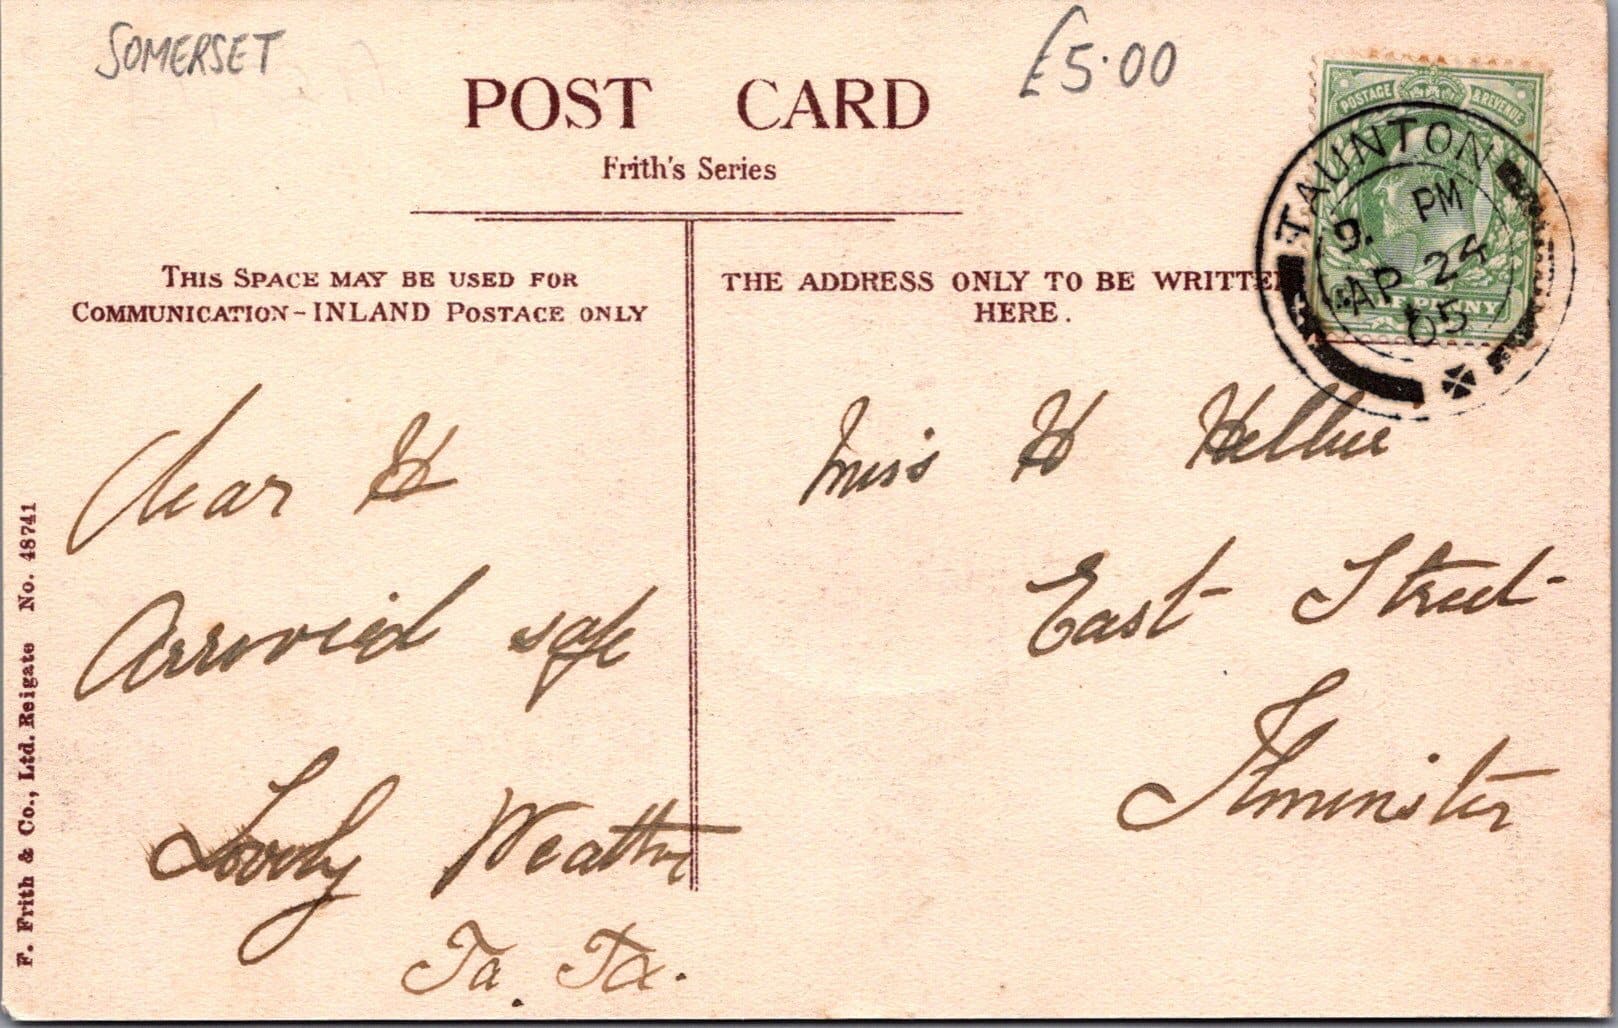 SOMERSET
£5.00
POST CARD
Frith's Series
THIS SPACE MAY BE USED FOR
COMMUNICATION - INLAND POSTAGE ONLY
THE ADDRESS ONLY TO BE WRITTEN
HERE.
POSTAGE & REVENUE
TAUNTON
9. PM
AP 24
05
HALF PENNY
Dear H
Arrovied safe
Lovely Weather
Ta. Ta.
Miss H
East Street
Ilminster
F. Frith & Co., Ltd. Reigate No. 48741